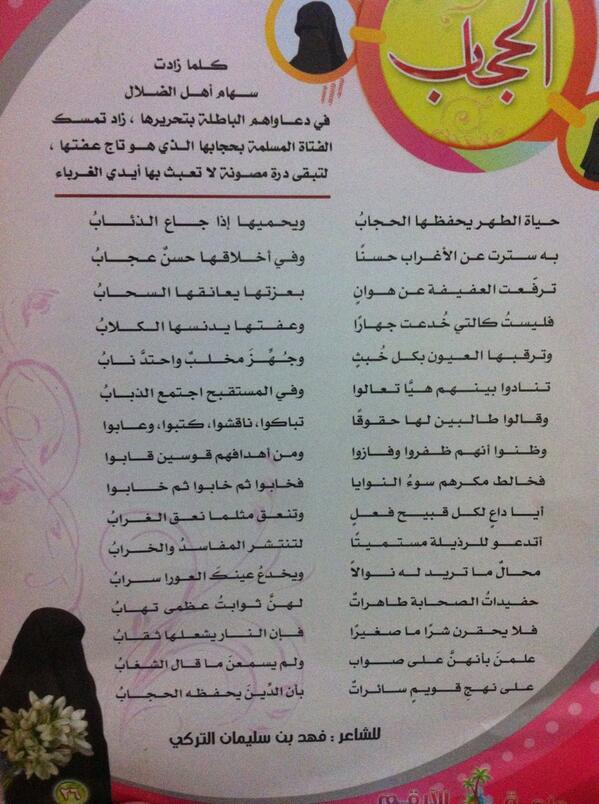 الحجاب
كلما زادت
سهام أهل الضلال
في دعاواهم الباطلة بتحريرها ، زاد تمسك
الفتاة المسلمة بحجابها الذي هو تاج عفتها ،
لتبقى درة مصونة لا تعبث بها أيدي الغرباء
حياة الطهر يحفظها الحجابُ ويحميها إذا جاع الذئابُ
به سترت عن الأغراب حسنًا وفي أخلاقها حسنٌ عجابُ
ترفّعت العفيفة عن هوانٍ بعزتها يعانقها السحابُ
فليستُ كالتي خُدعت جهارًا وعفتها يدنسها الكلابُ
وترقبها العيون بكل خُبثٍ وجُهِّزَ مخلبٌ واحتدَّ نابُ
تنادوا بينهم هيَّا تعالوا وفي المستقبح اجتمع الذبابُ
وقالوا طالبين لها حقوقًا تباكوا، ناقشوا، كتبوا، وعابوا
وظنوا أنهم ظفروا وفازوا ومن أهدافهم قوسين قابوا
فخالط مكرهم سوءُ النوايا فخابوا ثم خابوا ثم خابوا
أيا داعٍ لكل قبيح فعلٍ وتنعق مثلما نعق الغرابُ
أتدعو للرذيلة مستميتًا لتنتشر المفاسدُ والخرابُ
محالٌ ما تريد له نوالاً ويخدعُ عينكَ العورا سرابُ
حفيداتُ الصحابة طاهراتٌ لهنَّ ثوابتُ عظمى تهابُ
فلا يحقرن شرًا ما صغيرًا فإن النار يشعلها ثقابُ
علمنَ بأنهنَّ على صواب ولم يسمعنَ ما قال الشغابُ
على نهجٍ قويمٍ سائراتٌ بأن الدِّينَ يحفظه الحجابُ
للشاعر : فهد بن سليمان التركي
٢٦